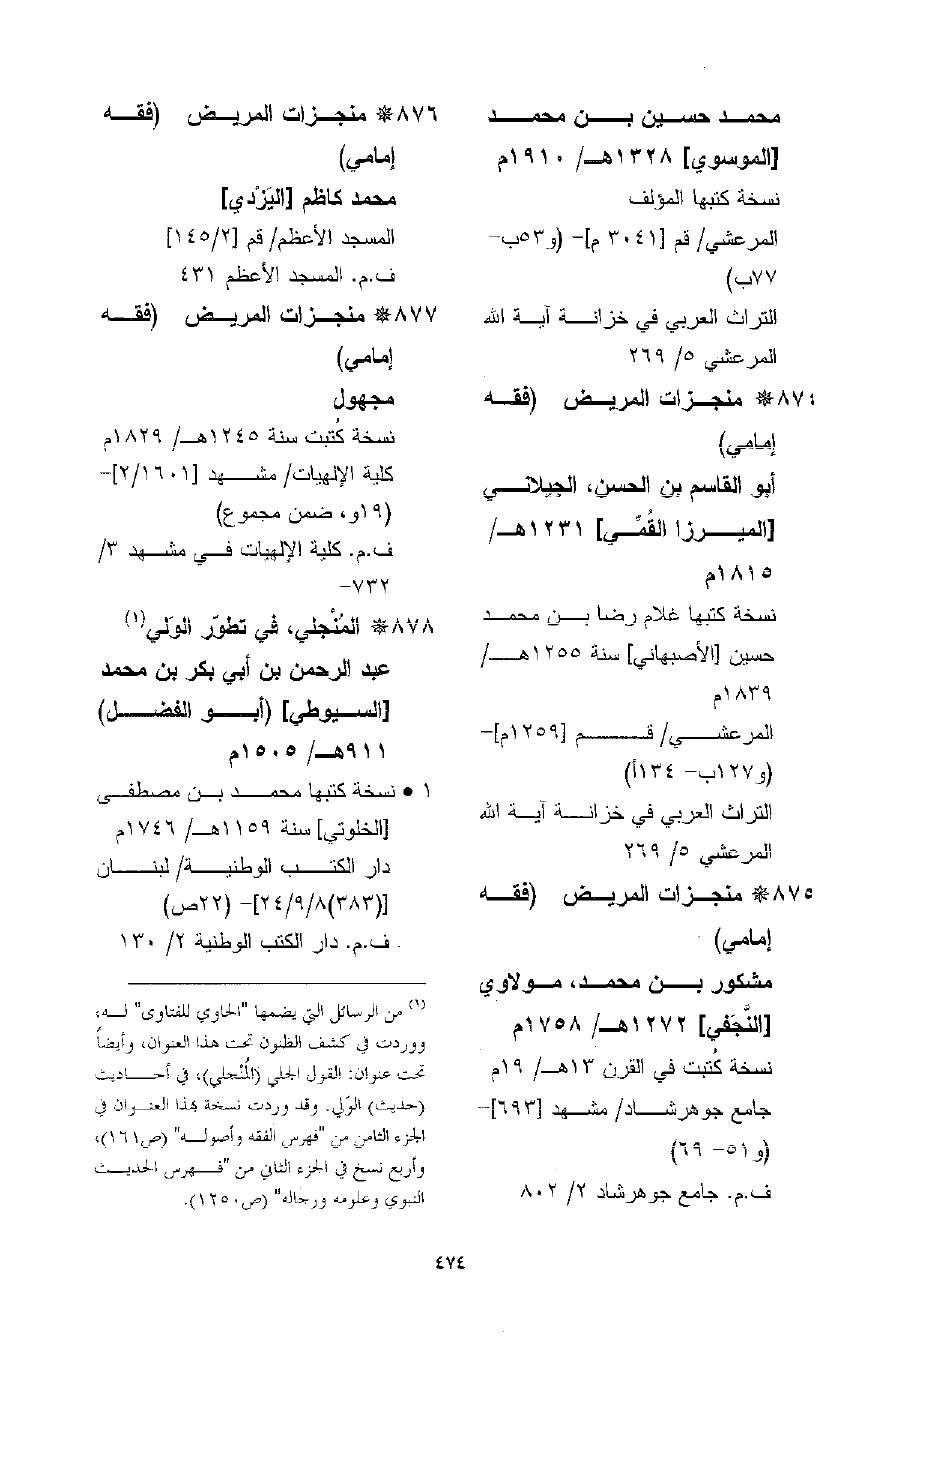 محمد حسين بن محمد
[الموسوي] ١٣٢٨هـ/ ١٩١٠م
نسخة كتبها المؤلف
المرعشي/ قم [٣٠٤١ م]- (و٥٣ب-
٧٧ب)
التراث العربي في خزانة آية الله
المرعشي ٥/ ٢٦٩
٨٧٤* منجزات المريض (فقه
إمامي)
أبو القاسم بن الحسن، الجيلاني
[الميرزا القُمّي] ١٢٣١هـ/
١٨١٥م
نسخة كتبها غلام رضا بن محمد
حسين [الأصبهاني] سنة ١٢٥٥هـ/
١٨٣٩م
المرعشي/ قم [١٢٥٩م]-
(و١٢٧ب- ١٣٤أ)
التراث العربي في خزانة آية الله
المرعشي ٥/ ٢٦٩
٨٧٥* منجزات المريض (فقه
إمامي)
مشكور بن محمد، مولاوي
[النَّجَفي] ١٢٧٢هـ/ ١٧٥٨م
نسخة كُتبت في القرن ١٣هـ/ ١٩م
جامع جوهرشاد/ مشهد [٦٩٣]-
(و٥١- ٦٩)
ف.م. جامع جوهرشاد ٢/ ٨٠٢
٨٧٦* منجزات المريض (فقه
إمامي)
محمد كاظم [اليَزْدي]
المسجد الأعظم/ قم [١٤٥/٢]
ف.م. المسجد الأعظم ٤٣١
٨٧٧* منجزات المريض (فقه
إمامي)
مجهول
نسخة كُتبت سنة ١٢٤٥هـ/ ١٨٢٩م
كلية الإلهيات/ مشهد [٢/١٦٠١]-
(١٩و، ضمن مجموع)
ف.م. كلية الإلهيات في مشهد ٣/
٧٣٢-
٨٧٨* المُنْجلي، في تطوّر الوَلي(١)
عبد الرحمن بن أبي بكر بن محمد
[السيوطي] (أبو الفضل)
٩١١هـ/ ١٥٠٥م
١ • نسخة كتبها محمد بن مصطفى
[الخلوتي] سنة ١١٥٩هـ/ ١٧٤٦م
دار الكتب الوطنية/ لبنان
[(٣٨٣)٢٤/٩/٨]- (٢٢ص)
ف.م. دار الكتب الوطنية ٢/ ١٣٠
(١) من الرسائل التي يضمها "الحاوي للفتاوى" له،
ووردت في كشف الظنون تحت هذا العنوان، وأيضاً
تحت عنوان: القول الجلي (المُنْجلي)، في أحاديث
(حديث) الوَلي. وقد وردت نسخة بهذا العنوان في
الجزء الثامن من "فهرس الفقه وأصوله" (ص١٦١)،
وأربع نسخ في الجزء الثاني من "فهرس الحديث
النبوي وعلومه ورجاله" (ص١٢٥٠).
٤٧٤